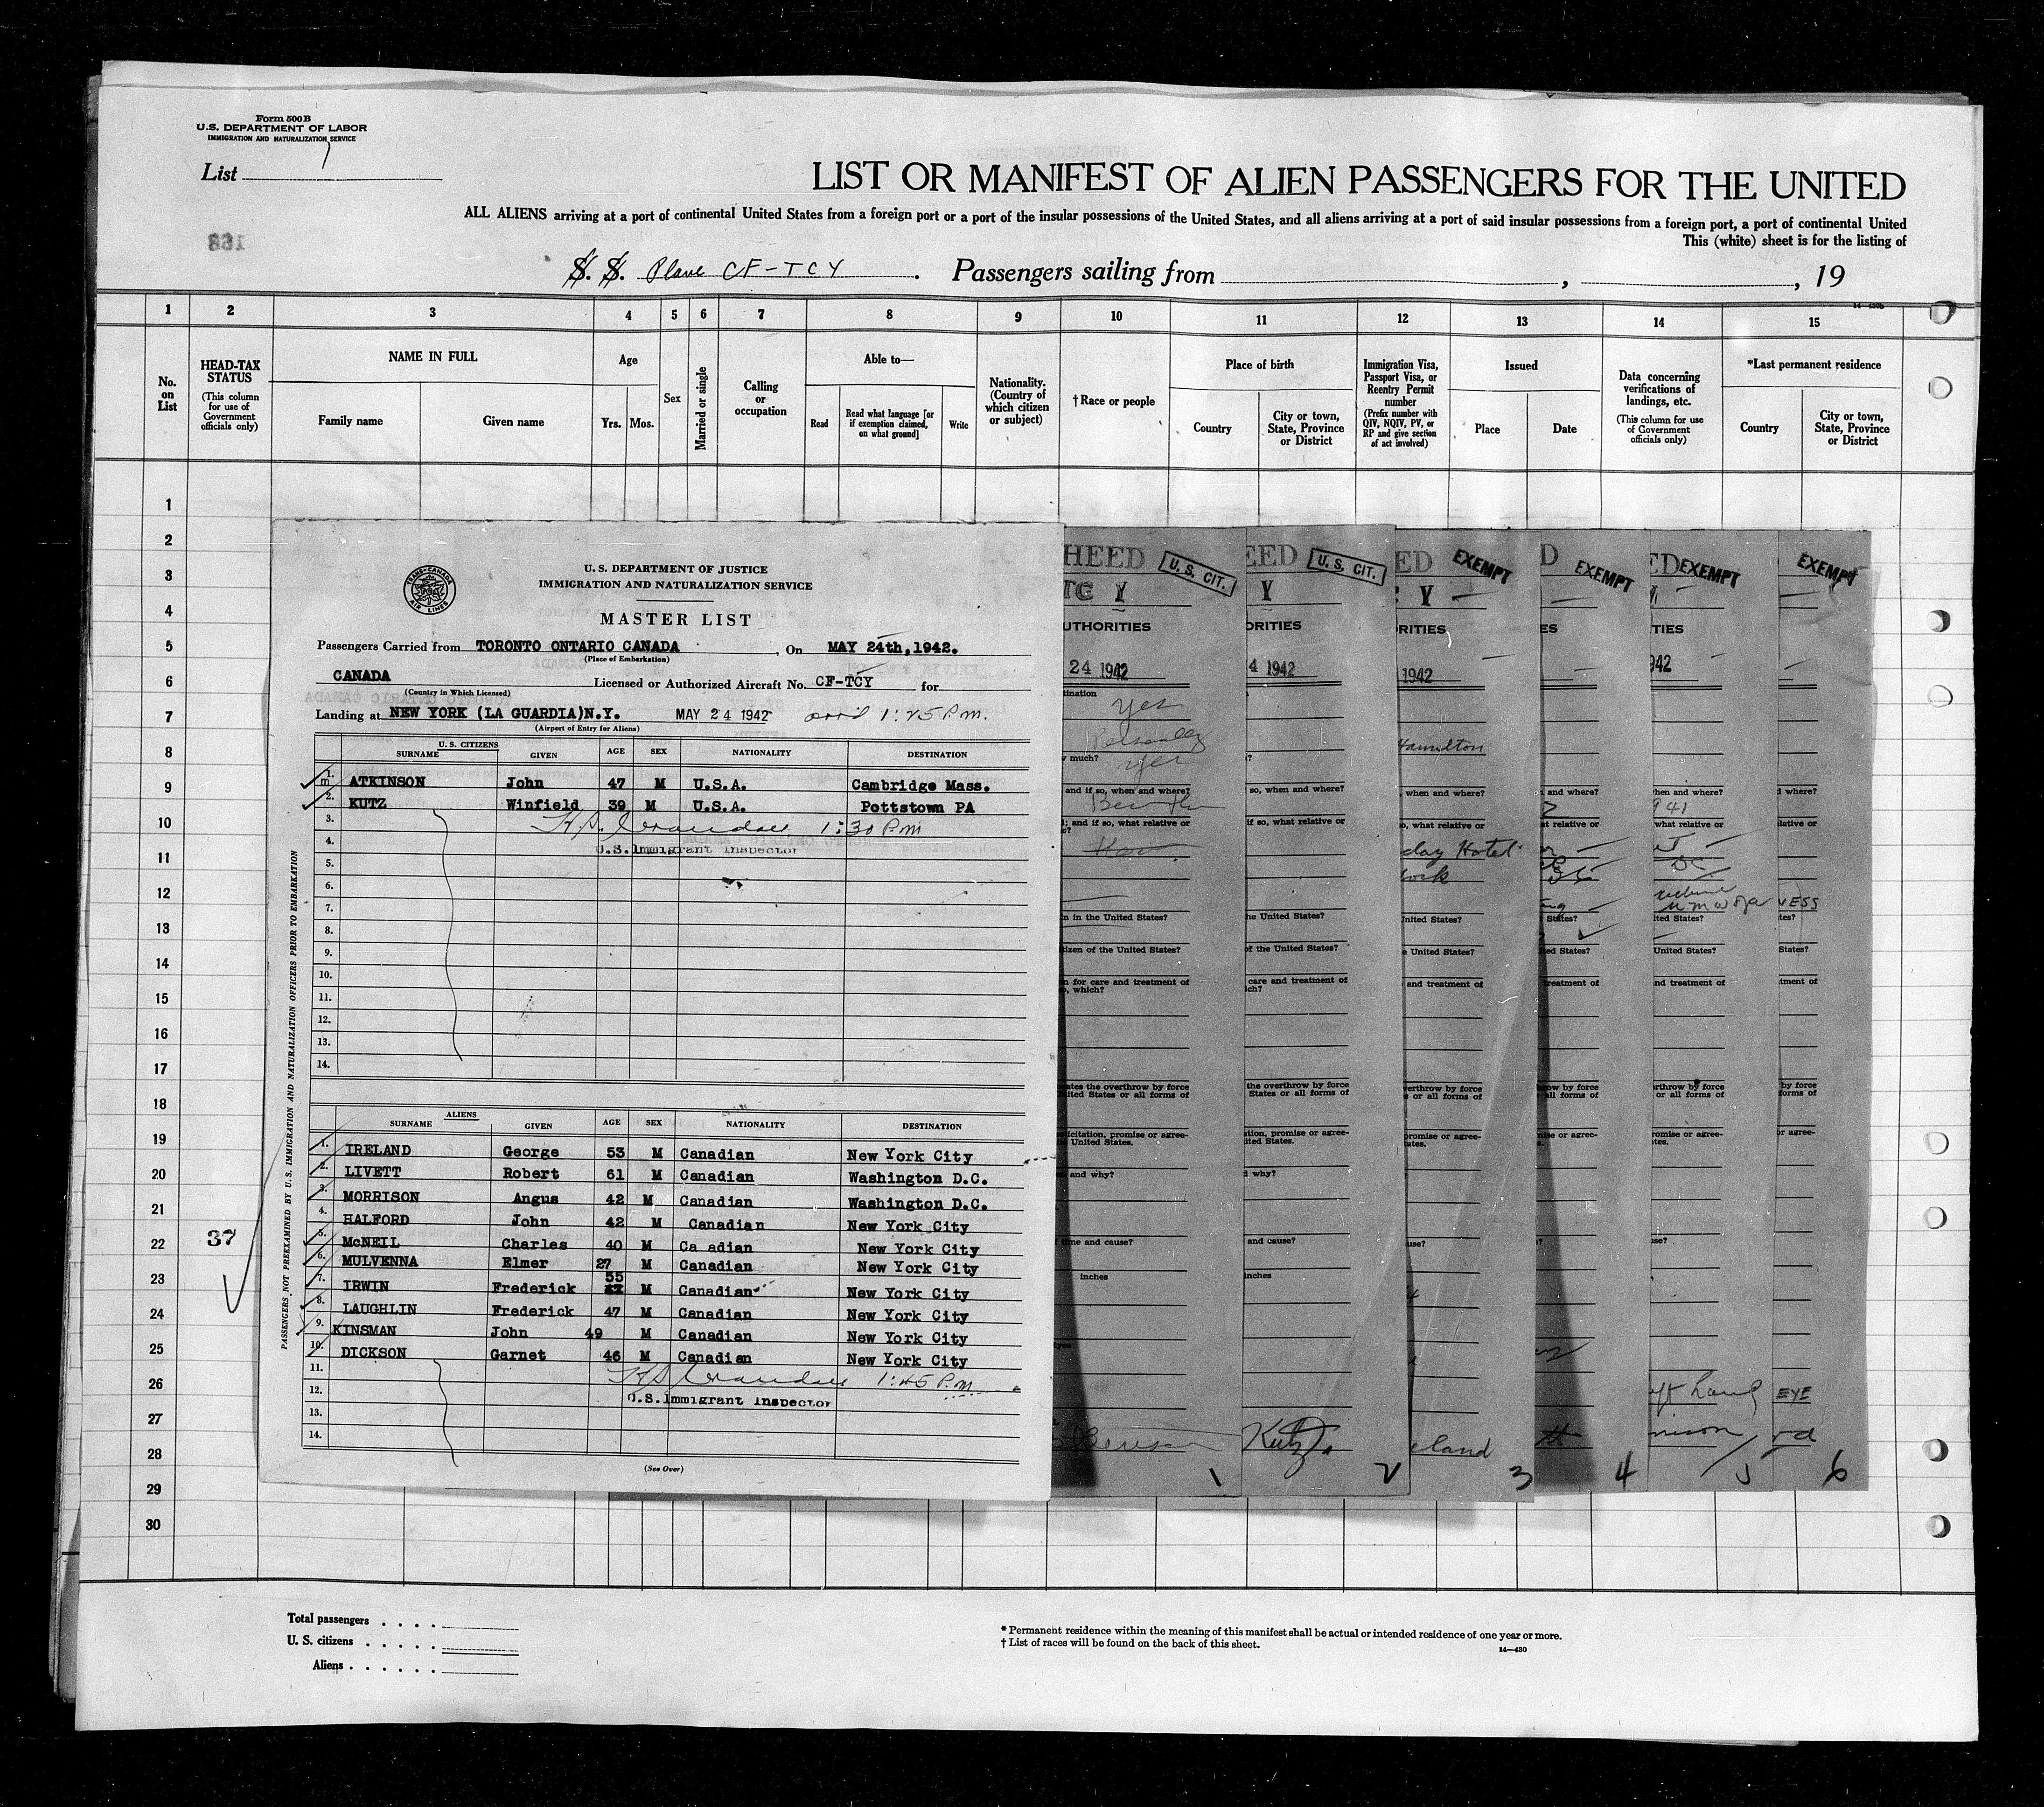 Form 500 B
U.S. DEPARTMENT OF LABOR
IMMIGRATION AND NATURALIZATION SERVICE
List 1
LIST OR MANIFEST OF ALIEN PASSENGERS FOR THE UNITED
ALL ALIENS arriving at a port of continental United States from a foreign port or a port of the insular possessions of the United States, and all aliens arriving at a port of said insular possessions from a foreign port, a port of continental United
This (white) sheet is for the listing of
168
S. S. Plane CF-TCY . Passengers sailing from , , 19
14—430b
1 2 3 4 5 6 7 8 9 10 11 12 13 14 15
No. on List
HEAD-TAX STATUS (This column for use of Government officials only)
NAME IN FULL
Family name Given name
Age
Yrs. Mos.
Sex
Married or single
Calling or occupation
Able to—
Read
Read what language [or if exemption claimed, on what ground]
Write
Nationality. (Country of which citizen or subject)
†Race or people
Place of birth
Country
City or town, State, Province or District
Immigration Visa, Passport Visa, or Reentry Permit number (Prefix number with QIV, NQIV, PV, or RP and give section of act involved)
Issued
Place Date
Data concerning verifications of landings, etc. (This column for use of Government officials only)
*Last permanent residence
Country
City or town, State, Province or District
1
2
3
4
5
6
7
8
9
10
11
12
13
14
15
16
17
18
19
20
21
22 37
23
24
25
26
27
28
29
30
TRANS-CANADA AIR LINES
U. S. DEPARTMENT OF JUSTICE
IMMIGRATION AND NATURALIZATION SERVICE
MASTER LIST
Passengers Carried from TORONTO ONTARIO CANADA , On MAY 24th,1942.
(Place of Embarkation)
CANADA Licensed or Authorized Aircraft No. CF-TCY for
(Country in Which Licensed)
Landing at NEW YORK (LA GUARDIA)N.Y. MAY 24 1942 1:25 P.m.
(Airport of Entry for Aliens)
U. S. CITIZENS
SURNAME GIVEN AGE SEX NATIONALITY DESTINATION
1. m ATKINSON John 47 M U.S.A. Cambridge Mass.
2. KUTZ Winfield 39 M U.S.A. Pottstown PA
3. 1:30 Pm
4. U.S.Immigrant Inspector
5.
6.
7.
8.
9.
10.
11.
12.
13.
14.
ALIENS
SURNAME GIVEN AGE SEX NATIONALITY DESTINATION
1. IRELAND George 53 M Canadian New York City
2. LIVETT Robert 61 M Canadian Washington D.C.
3. MORRISON Angus 42 M Canadian Washington D.C.
4. HALFORD John 42 M Canadian New York City
5. McNEIL Charles 40 M Ca adian New York City
6. MULVENNA Elmer 27 M Canadian New York City
7. IRWIN Frederick 55 M Canadian New York City
8. LAUGHLIN Frederick 47 M Canadian New York City
9. KINSMAN John 49 M Canadian New York City
10. DICKSON Garnet 46 M Canadian New York City
11. 1:45 P.m.
12. U.S.Immigrant Inspector
13.
14.
(See Over)
PASSENGERS NOT PREEXAMINED BY U.S. IMMIGRATION AND NATURALIZATION OFFICERS PRIOR TO EMBARKATION
HEED U. S. CIT.
TC Y
UTHORITIES
24 1942
tination
yes
Personally
much?
yes
and if so, when and where?
and if so, what relative or
n in the United States?
izen of the United States?
n for care and treatment of
, which?
ates the overthrow by force
nited States or all forms of
olicitation, promise or agree-
United States.
and why?
time and cause?
inches
eyes
1
EED U. S. CIT.
Y
ORITIES
4 1942
so, when and where?
if so, what relative or
he United States?
of the United States?
care and treatment of
ich?
the overthrow by force
States or all forms of
tion, promise or agree-
ited States.
why?
and cause?
inches
Kutz
2
ED EXEMPT
Y
RITIES
1942
Hamilton
when and where?
o, what relative or
day Hotel
ock
United States?
e United States?
and treatment of
verthrow by force
s or all forms of
promise or agree-
tates.
use?
eland
3
D EXEMPT
ES
and where?
at relative or
States?
ed States?
treatment of
row by force
all forms of
ise or agree-
tt
4
ED EXEMPT
TIES
942
hen and where?
941
what relative or
DC
ited States?
United States?
nd treatment of
erthrow by force
or all forms of
romise or agree-
tes.
use?
nison
5
EXEMPT
d where?
lative or
NESS
tes?
States?
tment of
by force
forms of
or agree-
EYE
rd
6
Total passengers . . . .
U. S. citizens . . . . .
Aliens . . . . . .
* Permanent residence within the meaning of this manifest shall be actual or intended residence of one year or more.
† List of races will be found on the back of this sheet.
14—430